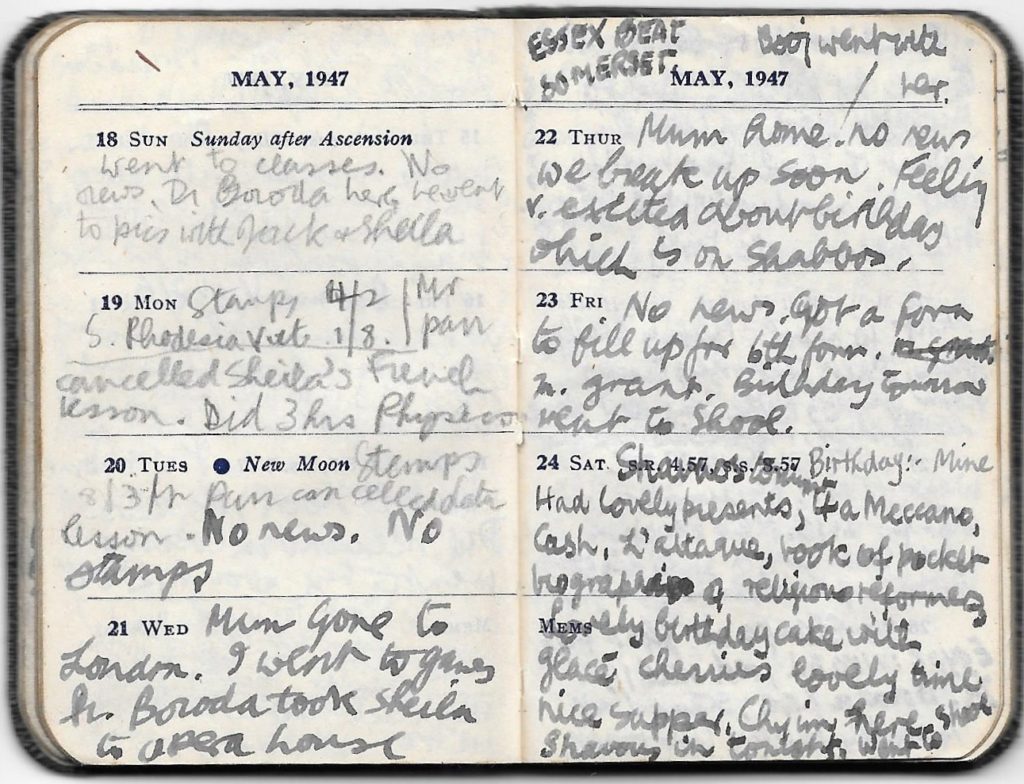 MAY, 1947
18 SUN Sunday after Ascension
Went to classes. No
news. Dr Boroda here went
to pics with Jack & Sheila
19 MON Stamps 4/2 Mr
S. Rhodesia V. etc 1/8. Parr
cancelled Sheila's French
lesson. Did 3 hrs Physics
20 TUES New Moon Stamps
8/3/ Parr cancelled
lesson. No news. No
stamps
21 WED Mum Gone to
London. I went to games
Dr. Boroda took Sheila
to opera house
ESSEX BEAT
SOMERSET
Booj went with
her.
MAY, 1947
22 THUR Mum Home. no news
we break up soon. Feeling
v. excited about birthday
which is on Shabbos.
23 FRI No news. Got a form
to fill up for 6th form.
m. grant. Birthday tomorrow
went to Shool.
24 SAT S.R. 4.57, S.S. 8.57 Birthday:- Mine
Had lovely presents, 4a Meccano,
Cash, L'attaque, book of pocket
biographies of religious reformers
MEMS Lovely birthday cake with
glacé cherries lovely time
nice supper. Chyim here. Shool
Shavous in tonight. Went to